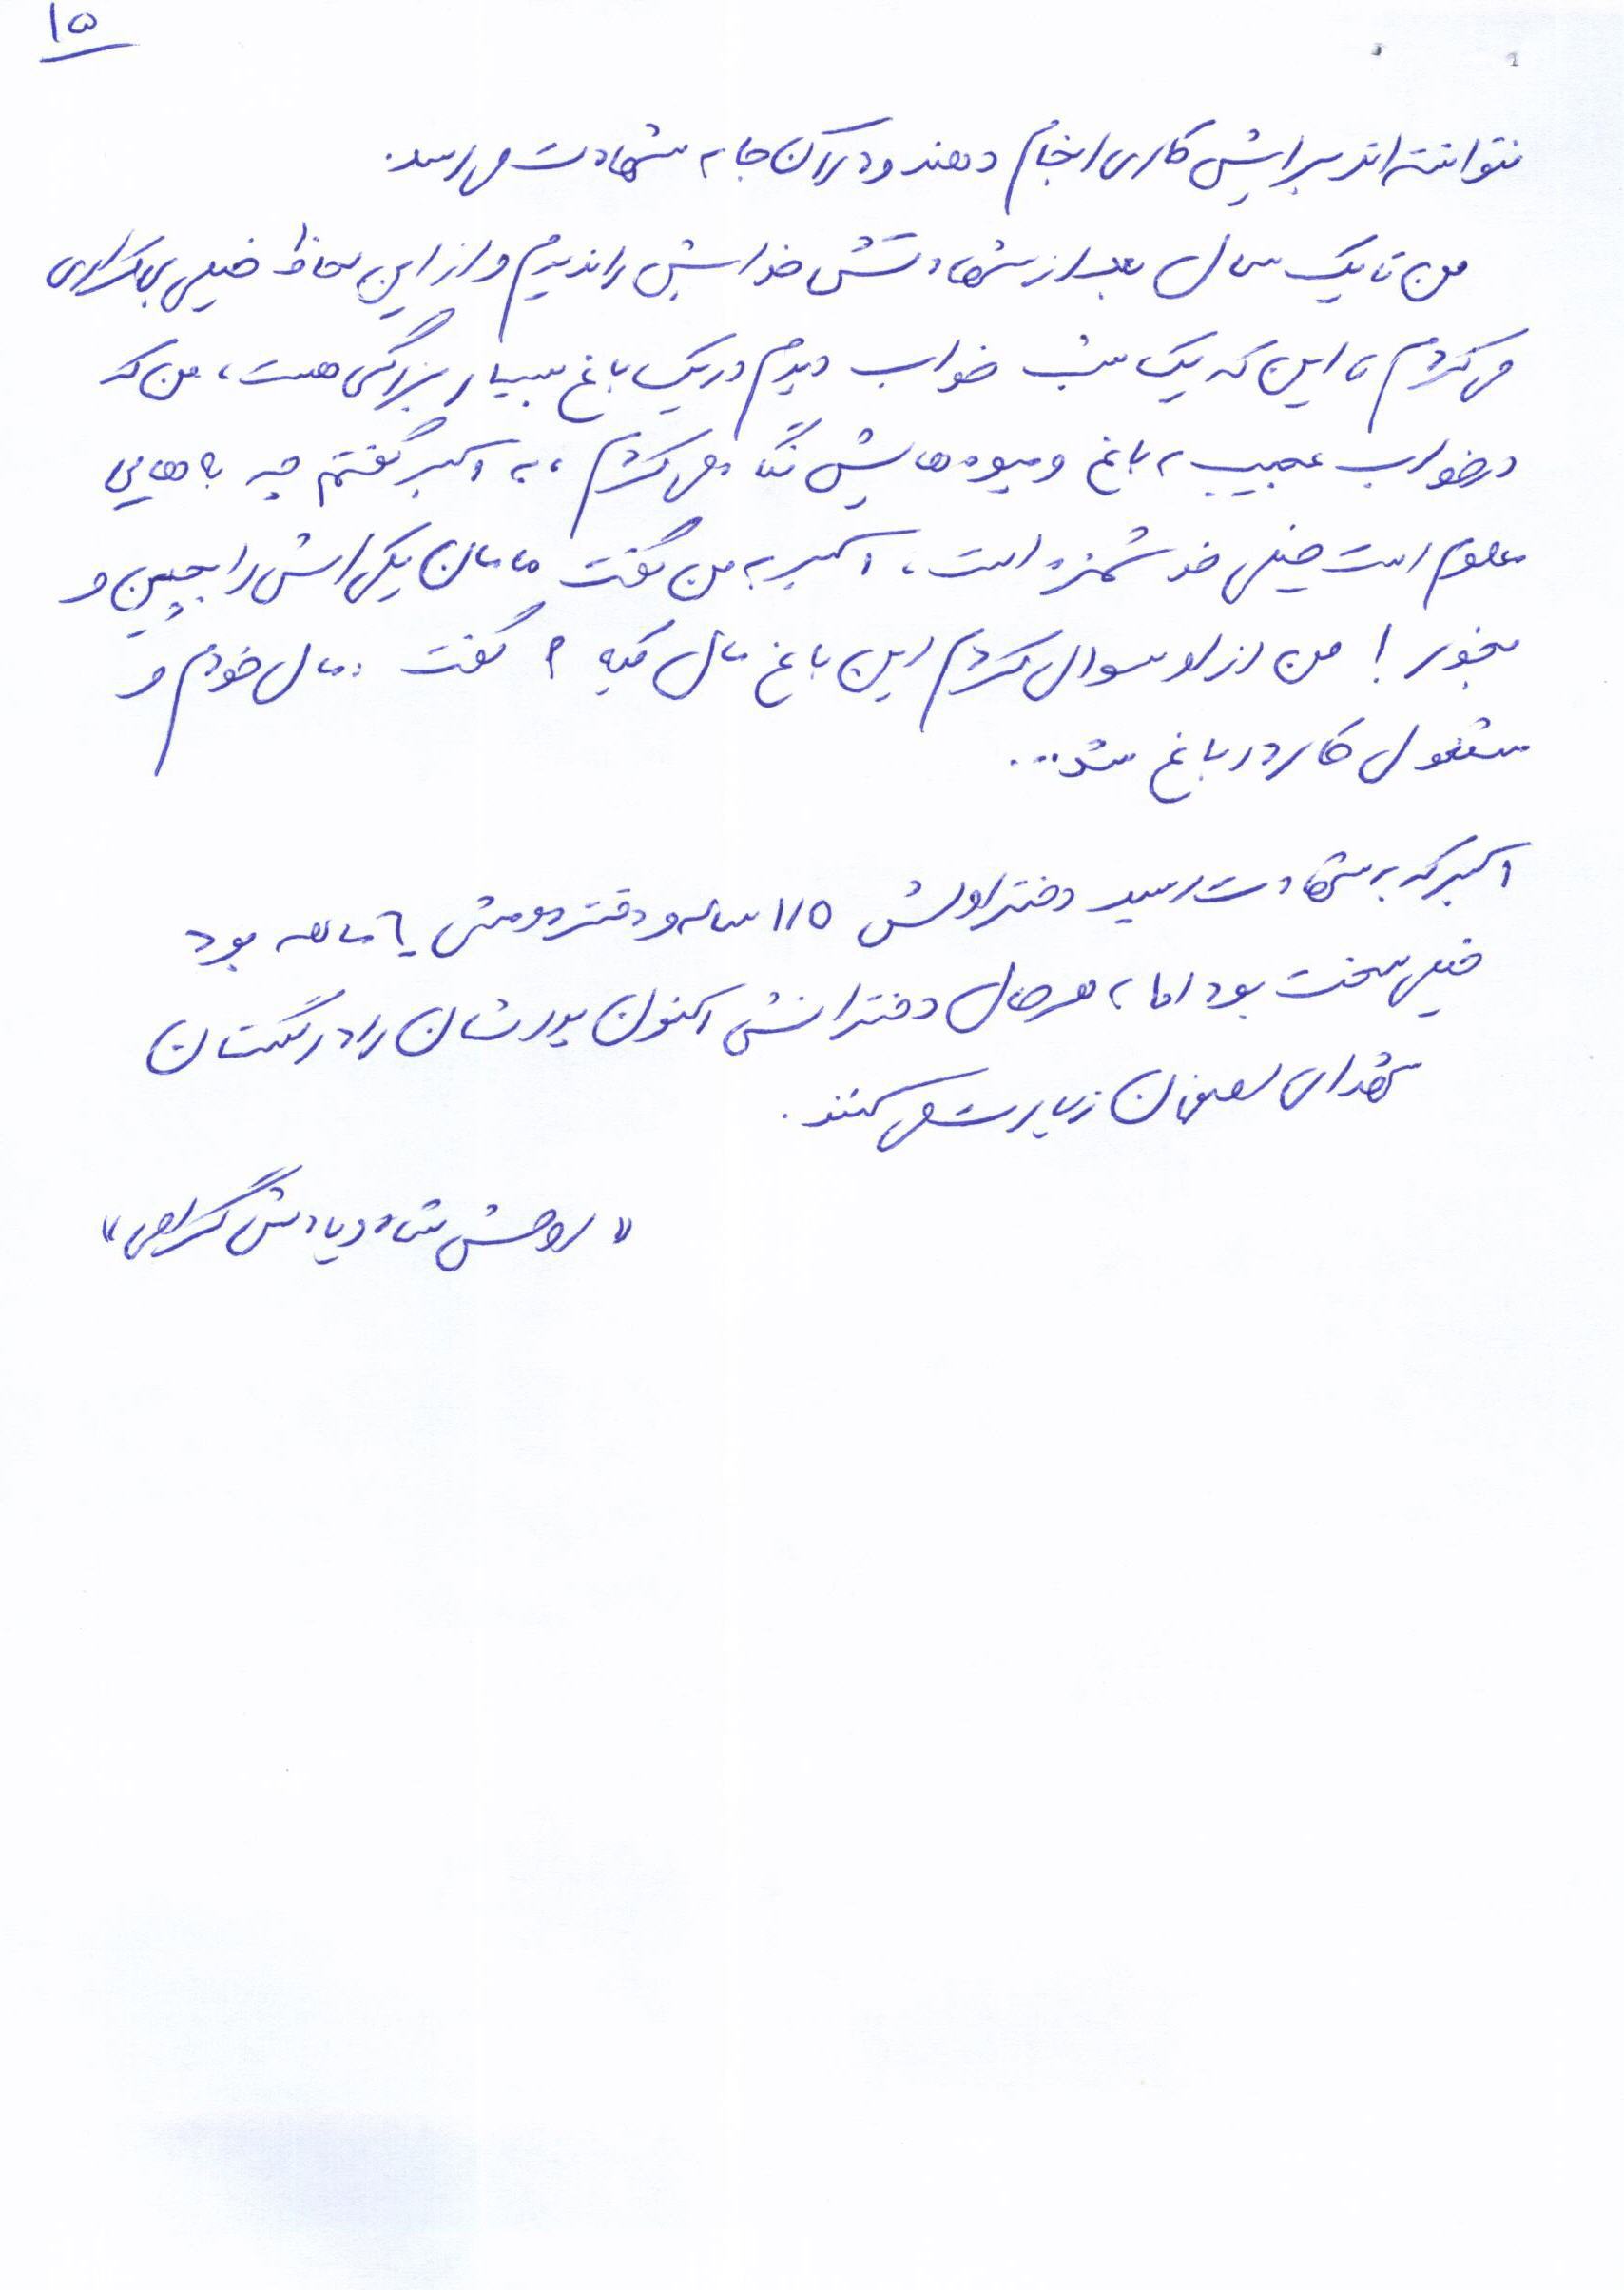 ۱۵
نتوانسته‌اند برایش کاری انجام دهند و در آن جا به شهادت می‌رسد.
من تا یک سال بعد از شهادتش خوابش را ندیدم و از این لحاظ خیلی بی‌قراری
می‌کردم، تا این که یک شب خواب دیدم در یک باغ بسیار بزرگی هست، من که
در خواب عجیب به باغ و میوه‌هایش نگاه می‌کردم، به اکبر گفتم چه به‌هایی
معلوم است خیلی خوشمزه است، اکبر به من گفت مامان یکی‌اش را بچین و
بخور! من از او سوال کردم این باغ مال کیه؟ گفت: مال خودم و
مشغول کار در باغ شد...
اکبر که به شهادت رسید دختر اولش ۱/۵ ساله و دختر دومش ۶ ماهه بود
خیلی سخت بود اما به هر حال دخترانش اکنون پدرشان را در گلستان
شهدای اصفهان زیارت می‌کنند.
«روحش شاد و یادش گرامی»